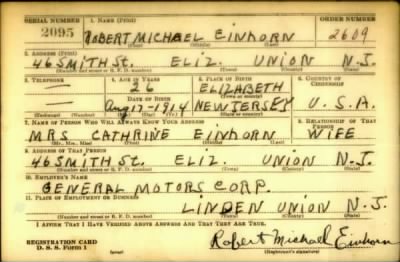 SERIAL NUMBER 1. NAME (Print) ORDER NUMBER
2095 ROBERT MICHAEL EINHORN 2609
(First) (Middle) (Last)
2. ADDRESS (Print)
46 SMITH St. ELIZ. UNION N.J.
(Number and street or R. F. D. number) (Town) (County) (State)
3. TELEPHONE 4. AGE IN YEARS 5. PLACE OF BIRTH 6. COUNTRY OF CITIZENSHIP
— 26 ELIZABETH
DATE OF BIRTH (Town or county)
— Aug 17-1914 NEW JERSEY U.S.A.
(Exchange) (Number) (Mo.) (Day) (Yr.) (State or country)
7. NAME OF PERSON WHO WILL ALWAYS KNOW YOUR ADDRESS 8. RELATIONSHIP OF THAT PERSON
MRS CATHRINE EINHORN WIFE
(Mr., Mrs., Miss) (First) (Middle) (Last)
9. ADDRESS OF THAT PERSON
46 SMITH St. ELIZ. UNION N.J.
(Number and street or R. F. D. number) (Town) (County) (State)
10. EMPLOYER'S NAME
GENERAL MOTORS CORP.
11. PLACE OF EMPLOYMENT OR BUSINESS
LINDEN UNION N.J.
(Number and street or R. F. D. number) (Town) (County) (State)
I AFFIRM THAT I HAVE VERIFIED ABOVE ANSWERS AND THAT THEY ARE TRUE.
REGISTRATION CARD
D. S. S. Form 1 (over) Robert Michael Einhorn
(Registrant's signature)